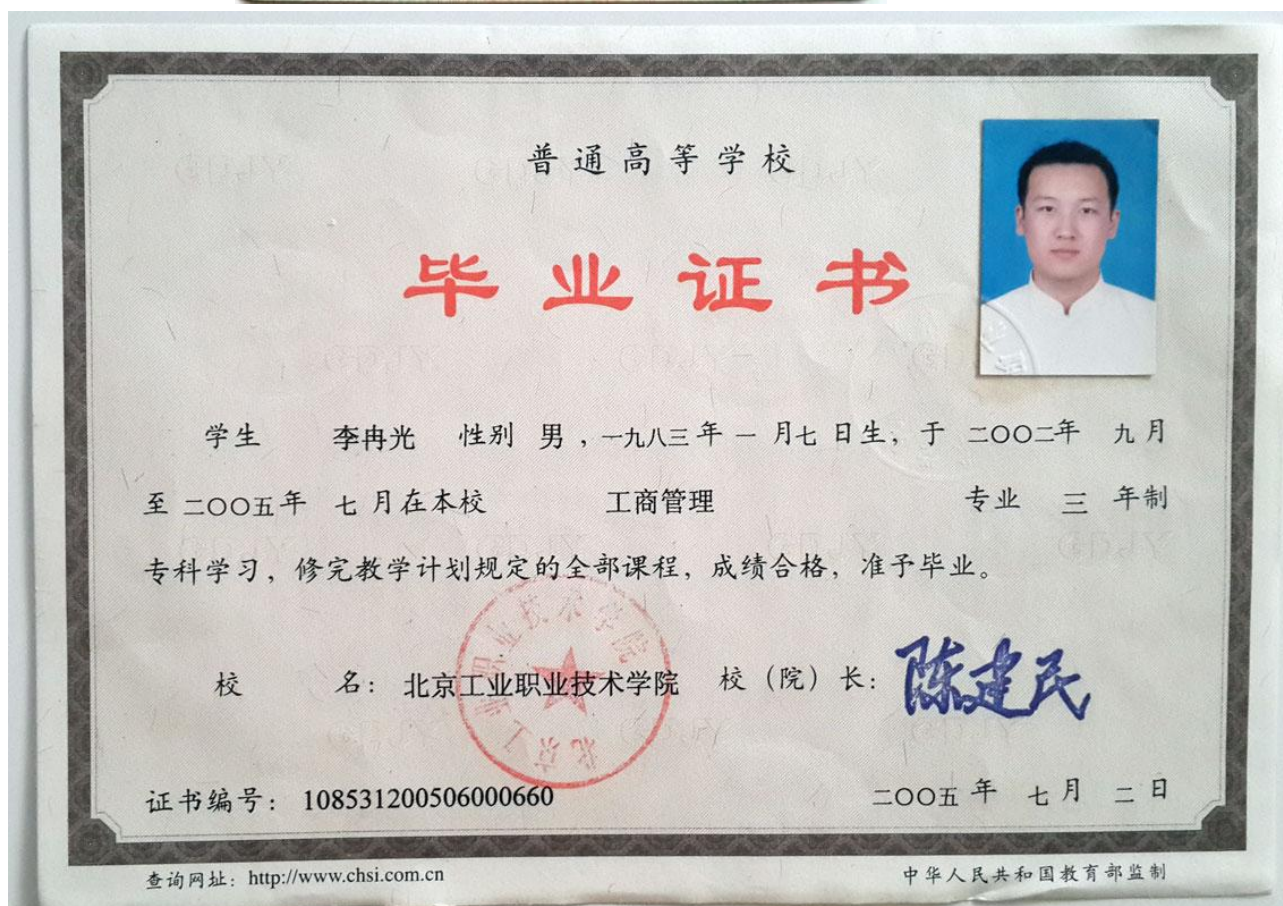 普通高等学校
毕业证书
学生 李冉光 性别 男，一九八三年 一 月七 日生，于 二〇〇二年 九月
至 二〇〇五年 七 月在本校 工商管理 专业 三 年制
专科学习，修完教学计划规定的全部课程，成绩合格，准予毕业。
校 名：北京工业职业技术学院 校（院）长：陈建民
北京工业职业技术学院
证书编号：108531200506000660 二〇〇五 年 七 月 二 日
查询网址：http://www.chsi.com.cn 中华人民共和国教育部监制